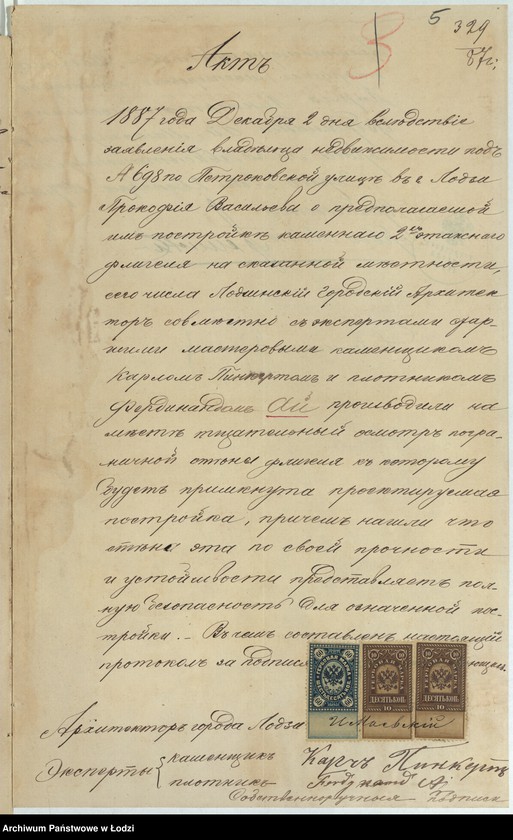 5
329
87 г.
3
Актъ
1887 года Декабря 2 дня вслѣдствіе
заявленія владѣльца недвижимости подъ
№ 698 по Петроковской улицѣ въ г. Лодзи
Прокофія Васильева о предполагаемой
имъ постройкѣ каменнаго 2хъ этажнаго
флигеля на сказанной мѣстности,
сего числа Лодзинскій Городскій Архитек
торъ совмѣстно съ экспертами стар
шими мастеровыми каменщикомъ
Карломъ Пинкертомъ и плотникомъ
Фердинандомъ Ай производили на
мѣстѣ тщательный осмотръ погра
ничной стѣны флигеля къ которому
будетъ примкнута проектируемая
постройка, причемъ нашли что
стѣна эта по своей прочности
и устойчивости представляетъ пол
ную безопасность для означенной пос
тройки. - Въ чемъ составленъ настоящій
протоколъ за подпися
Архитекторъ города Лодзи И Маевскій
Эксперты { каменщикъ Карлъ Пинкертъ
плотникъ Ferdynand Aj
Собственноручныя подписи
60 60
ДЕСЯТЬ КОП.
10
ДЕСЯТЬ КОП.
10
Archiwum Państwowe w Łodzi